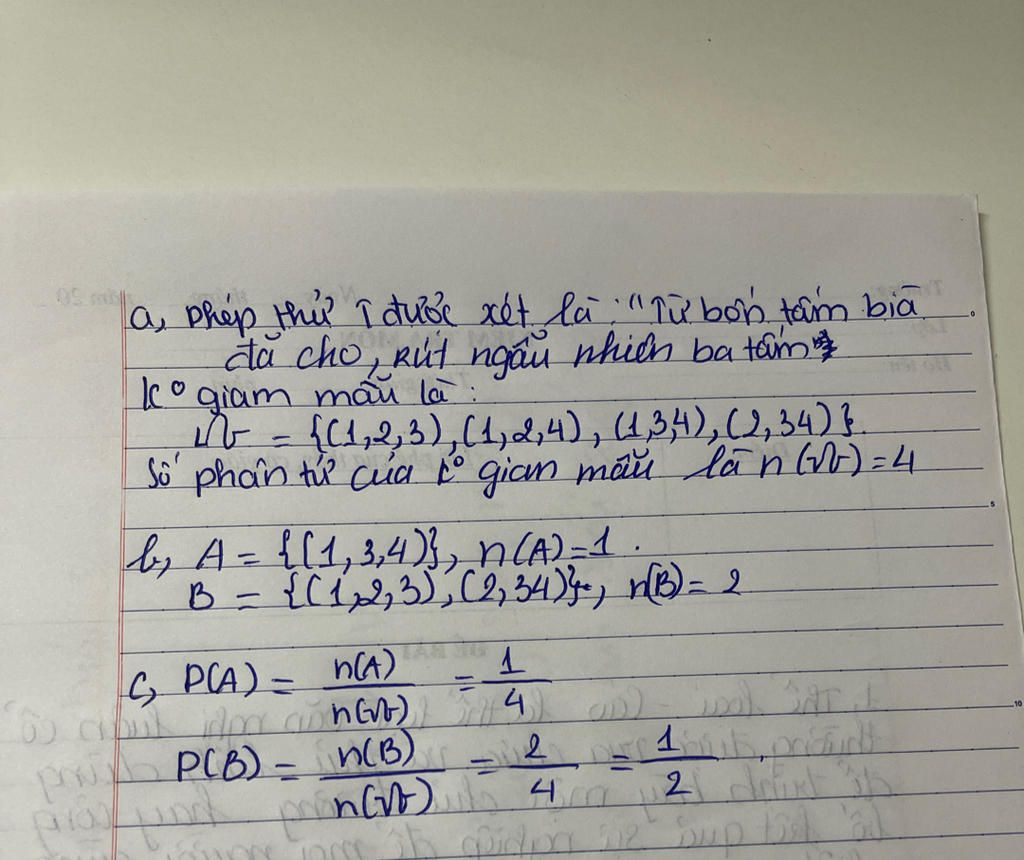 a, Phép thử T được xét là: "Từ bốn tấm bìa
đã cho, rút ngẫu nhiên ba tấm"
Ko giam mẫu là:
Ω = {(1,2,3),(1,2,4),(1,3,4),(2,34)}.
Số phần tử của ko gian mẫu là n(Ω)=4
b, A = {(1,3,4)}, n(A)=1.
B = {(1,2,3),(2,34)}, n(B)= 2
c, P(A) = n(A)/n(Ω) = 1/4
P(B) = n(B)/n(Ω) = 2/4 = 1/2.
5
10